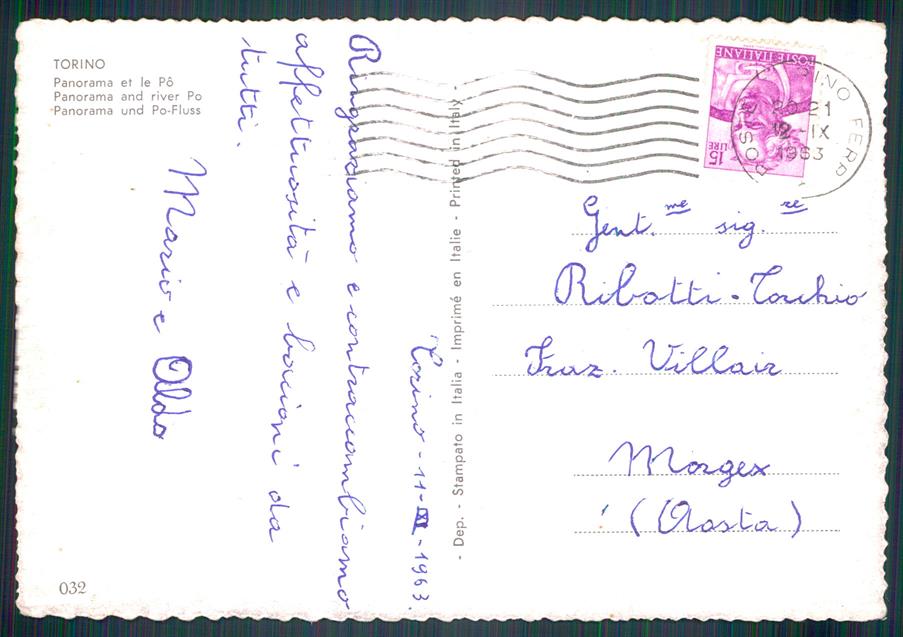 TORINO
Panorama et le Pô
Panorama and river Po
Panorama und Po-Fluss
Torino - 11-IX-1963.
Ringraziamo e contraccambiamo
affettuosità e bacioni da
tutti.
Mario e Aldo
032
- Dep. - Stampato in Italia - Imprimé en Italie - Printed in Italy -
POSTE ITALIANE
15 LIRE
INO FERR
20-21
12-IX
1963
Gent.me sig.re
Ribotti-Torchio
Fraz. Villair
Morgex
(Aosta)